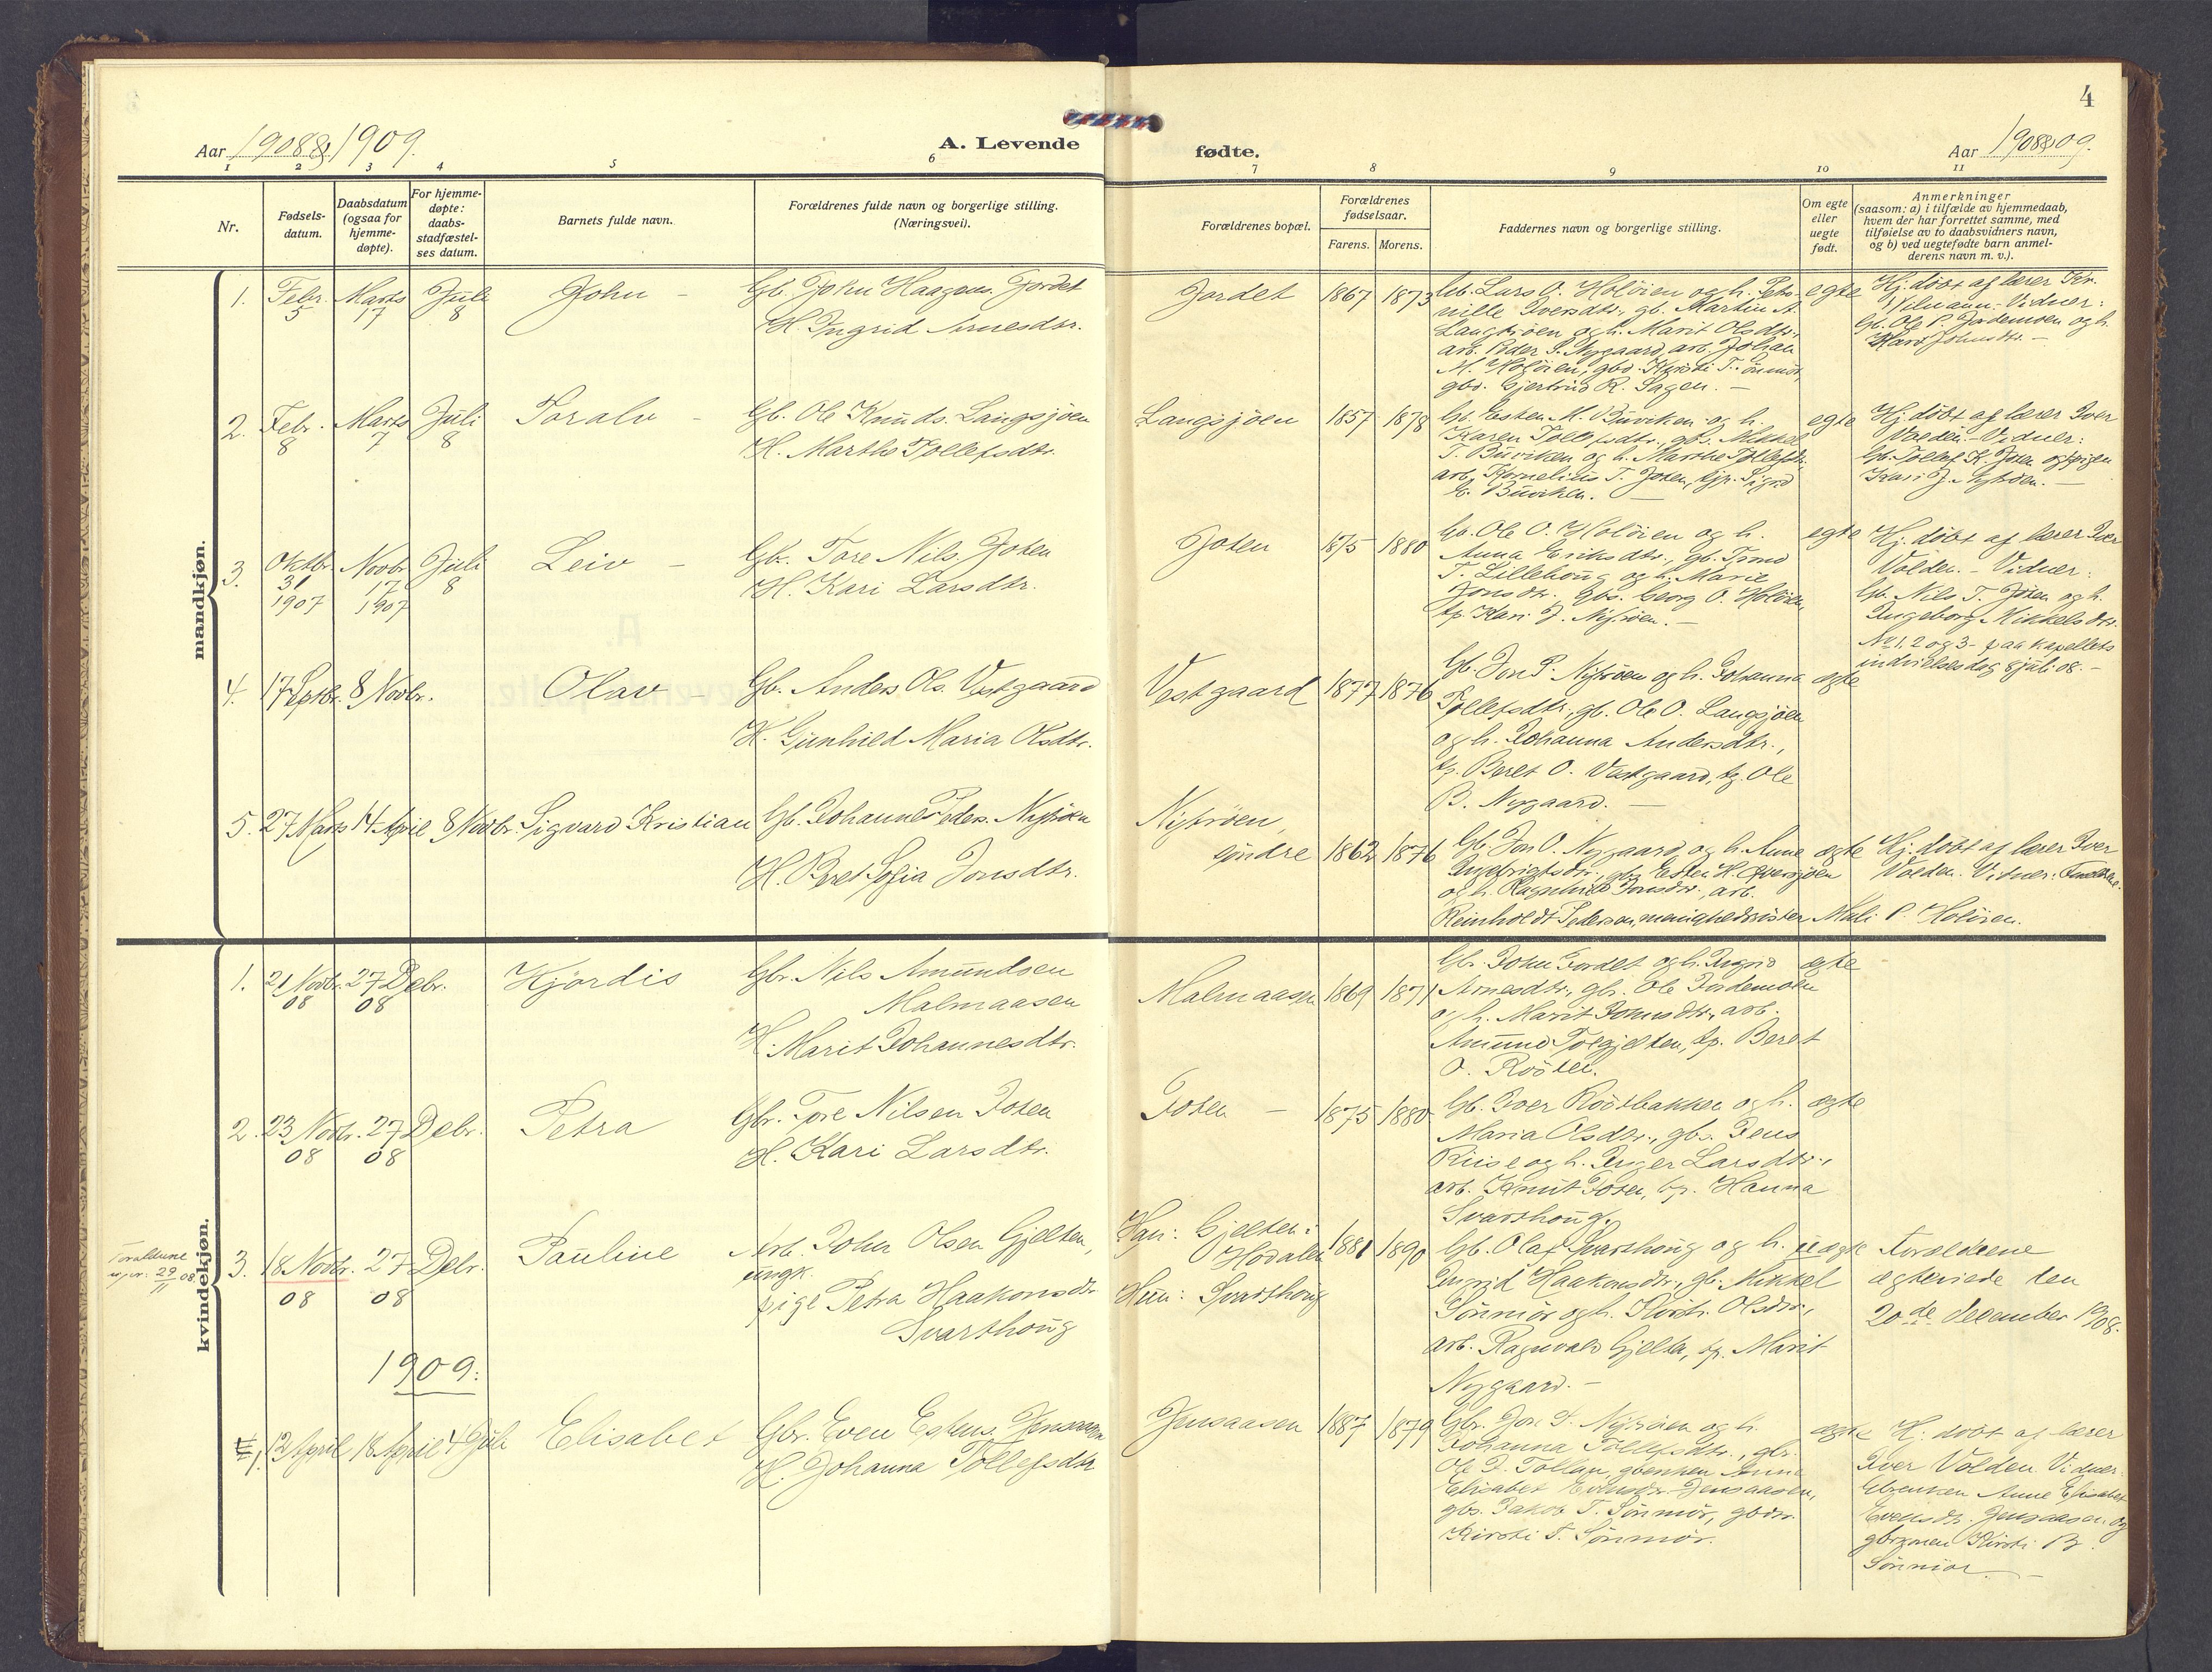 4
Aar 1908 & 1909.
A. Levende
fødte.
Aar 1908 & 09.
1 2 3 4 5 6 7 8 9 10 11
Nr.
Fødsels-
datum.
Daabsdatum
(ogsaa for
hjemme-
døpte).
For hjemme-
døpte:
daabs-
stadfæstel-
ses datum.
Barnets fulde navn.
Forældrenes fulde navn og borgerlige stilling.
(Næringsvei).
Forældrenes bopæl.
Forældrenes
fødselsaar.
Farens. Morens.
Faddernes navn og borgerlige stilling.
Om egte
eller
uegte
født.
Anmerkninger
(saasom: a) i tilfælde av hjemmedaab,
hvem der har forrettet samme, med
tilføielse av to daabsvidners navn,
og b) ved uegtefødte barn anmel-
derens navn m. v.).
mandkjøn.
1. Febr. 5 Marts 17 Juli 8 John -
Gb. John Haagens. Jordet
H. Ingrid Arnesdtr.
Jordet 1867 1873
Gb. Lars O. Holöien og h. Petro-
nille Iversdtr., gb. Martin A.
Langsjöen og h. Marit Olsdtr.,
arb. Peder P. Nygaard, arb. Johan
M. Holöien, gbd. Kirsti T. Sönmör,
gbd. Gjertrud R. Sagen. -
egte
Hj. döbt af lærer Kr.
Vilmann. - Vidner:
Gb. Ole P. Jordemoen og h.
Johnsdtr. -
2. Febr. 8 Marts 7 Juli 8 Toralv -
Gb. Ole Knuds. Langsjöen
H. Marthe Tollefsdtr.
Langsjöen 1857 1878
Gb. Esten M. Buviken og h.
Karen Tollefsdtr., gb. Mikkel
T. Buviken og h. Marthe Tollefsdtr.,
arb. Kornelius T. Joten, tjp. Sigrid
E. Buviken. -
egte
Hj. döbt af lærer Iver
Volden. - Vidner:
Gb. Tollef K. Joten og pigen
Kari J. Nyröen. -
3. Oktbr. 31 1907 Novbr. 17 1907 Juli 8 Leiv -
Gb. Tore Nils. Joten
H. Kari Larsdtr.
Joten 1875 1880
Gb. Ole O. Holöien og h.
Anna Eriksdtr., gb. Trond
T. Lillehoug og h. Marie
Jonsdtr. Gbs. Georg O. Holöien,
tp. Kari J. Nyröen. -
egte
Hj. döbt af lærer Iver
Volden. - Vidner:
Gb. Nils T. Joten og h.
Ingeborg Mikkelsdtr.
No 1, 2 og 3 - paa kapellets
indvielsesdag 8 juli 08. -
4. 17 Septbr. 8 Novbr. Olav -
Gb. Anders Ols. Vestgaard
H. Gunhild Maria Olsdtr.
Vestgaard 1877 1876
Gb. Jon P. Nyröen og h. Johanna
Tollefsdtr., gb. Ole O. Langsjöen
og h. Johanna Andersdtr.,
tp. Beret O. Vestgaard, tg. Ole
B. Nygaard. -
egte
5. 27 Marts 14 April 8 Novbr. Sigvard Kristian
Gb. Johannes Peders. Nyröen
H. Beret Sofia Jonsdtr.
Nyröen,
söndre 1862 1876
Gb. Jon O. Nygaard og h. Anne
Ingebrigtsdtr., gb. Esten H.
og h. Ragnhild Jonsdtr., arb.
Reinholdt Pederson, menighedssöster Mali P. Holöien.
egte
Hj. döbt af lærer Iver
Volden. Vidner: Fadderne.
kvindekjøn.
1. 21 Novbr. 08 27 Debr. 08 Hjördis
Gbr. Nils Amundsen
Malmaasen
H. Marit Johannesdtr.
Malmaasen 1869 1871
Gbr. John Jordet og h. Ingrid
Arnesdtr., gbr. Ole Jordemoen
og h. Marit Johnsdtr., arb.
Amund Tolgjelten, tp. Beret
O. Rösten.
egte
2. 23 Novbr. 08 27 Debr. 08 Petra
Gbr. Tore Nilsen Joten
H. Kari Larsdtr.
Joten - 1875 1880
Gb. Iver Röstbakken og h.
Maria Olsdtr., gbs. Jens
Kuise og h. Inger Larsdtr.,
arb. Knut Joten, tp. Hanna
Svarthoug.
egte
Forældrene
29/11 08
3. 18 Novbr. 08 27 Debr. 08 Pauline
Arb. John Olsen Gjelten,
ungk.
pige Petra Haakonsdtr
Svarthoug
Han: Gjelten:
Hodalen
Hun: Svarthoug
1881 1890
Gb. Olaf Svarthoug og h.
Ingrid Haakonsdtr., gb. Mikkel
Sönmör og h. Kirsti Olsdtr.,
arb. Ragnvald Gjelten, tp. Marit
Nygaard. -
uegte
Forældrene
egteviede den
20de december 1908.
1909:
1, 12 April 18 April 4 Juli Elisabet
Gbr. Even Estens. Jensaasen
H. Johanna Tollefsdtr
Jensaasen 1887 1879
Gbr. Jon P. Nyröien og h.
Johanna Tollefsdtr., gbr.
Ole J. Tollan, gbenken Anne
Elisabet Evensdr. Jensaasen,
gbs. Jakob T. Sönmör, gbdr.
Kirsti T. Sönmör.
egte
Hj. döbt af lærer
Iver Volden. Vidner
Gbrenken Anne Elisabet
Evensdr. Jensaasen og
gbrkonen Kirsti B.
Sönmör. -